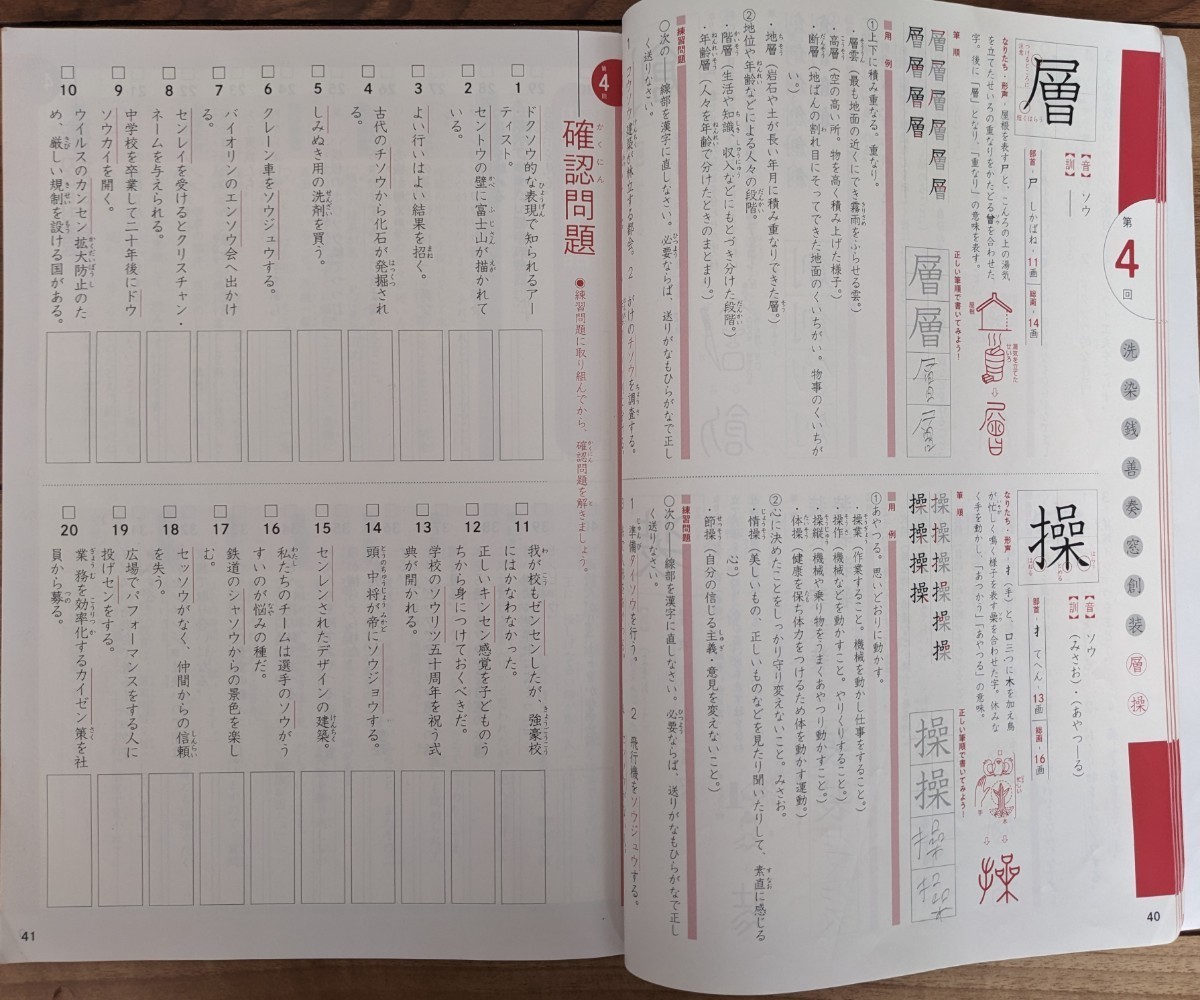 第4回
洗 染 銭 善 奏 窓 創 装 層 操
層
【音】ソウ
【訓】―
部首・尸 しかばね・11画 総画・14画
なりたち・形声 屋根を表す尸と、こんろの上の湯気
を立てたせいろの重なりをかたどる曽を合わせた
字。後に「層」となり、「重なり」の意味を表す。
筆順
層層層層層層層層層
正しい筆順で書いてみよう!
層 層 層 層
用例
①上下に積み重なる。重なり。
・層雲(最も地面の近くにでき霧雨をふらせる雲。)
・高層(空の高い所。物を高く積み上げた様子。)
・断層(地ばんの割れ目にそってできた地面のくいちがい。物事のくいちが
い。)
・地層(岩石や土が長い年月に積み重なりできた層。)
②地位や年齢などによる人々の段階。
・階層(生活や知識、収入などにもとづき分けた段階。)
・年齢層(人々を年齢で分けたときのまとまり。)
練習問題
○次の――線部を漢字に直しなさい。必要ならば、送りがなもひらがなで正し
く送りなさい。
1 コウソウ建築が林立する都会。 2 がけのチソウを調査する。
操
【音】ソウ
【訓】(みさお)・(あやつ―る)
部首・扌 てへん・13画 総画・16画
なりたち・形声 扌(手)と、口三つに木を加え鳥
が忙しく鳴く様子を表す喿を合わせた字。休みな
く手を動かし、「あつかう」「あやつる」の意味。
筆順
操操操操操操操操操操
正しい筆順で書いてみよう!
操 操 操 操
用例
①あやつる。思いどおりに動かす。
・操業(作業すること。機械を動かし仕事をすること。)
・操作(機械などを動かすこと。やりくりすること。)
・操縦(機械や乗り物をうまくあやつり動かすこと。)
・体操(健康を保ち体力をつけるため体を動かす運動。)
②心に決めたことをしっかり守り変えないこと。みさお。
・情操(美しいもの、正しいものなどを見たり聞いたりして、素直に感じる
心。)
・節操(自分の信じる主義・意見を変えないこと。)
練習問題
○次の――線部を漢字に直しなさい。必要ならば、送りがなもひらがなで正し
く送りなさい。
1 準備タイソウを行う。 2 飛行機をソウジュウする。
40
第4回
確認問題
●練習問題に取り組んでから、確認問題を解きましょう。
□1 ドクソウ的な表現で知られるアー
ティスト。
□2 セントウの壁に富士山が描かれて
いる。
□3 よい行いはよい結果を招く。
□4 古代のチソウから化石が発掘され
る。
□5 しみぬき用の洗剤を買う。
□6 クレーン車をソウジュウする。
□7 バイオリンのエンソウ会へ出かけ
る。
□8 センレイを受けるとクリスチャン・
ネームを与えられる。
□9 中学校を卒業して二十年後にドウ
ソウカイを開く。
□10 ウイルスのカンセン拡大防止のた
め、厳しい規制を設ける国がある。
□11 我が校もゼンセンしたが、強豪校
にはかなわなかった。
□12 正しいキンセン感覚を子どものう
ちから身につけておくべきだ。
□13 学校のソウリツ五十周年を祝う式
典が開かれる。
□14 頭、中将が帝にソウジョウする。
□15 センレンされたデザインの建築。
□16 私たちのチームは選手のソウがう
すいのが悩みの種だ。
□17 鉄道のシャソウからの景色を楽し
む。
□18 セッソウがなく、仲間からの信頼
を失う。
□19 広場でパフォーマンスをする人に
投げセンをする。
□20 業務を効率化するカイゼン策を社
員から募る。
41